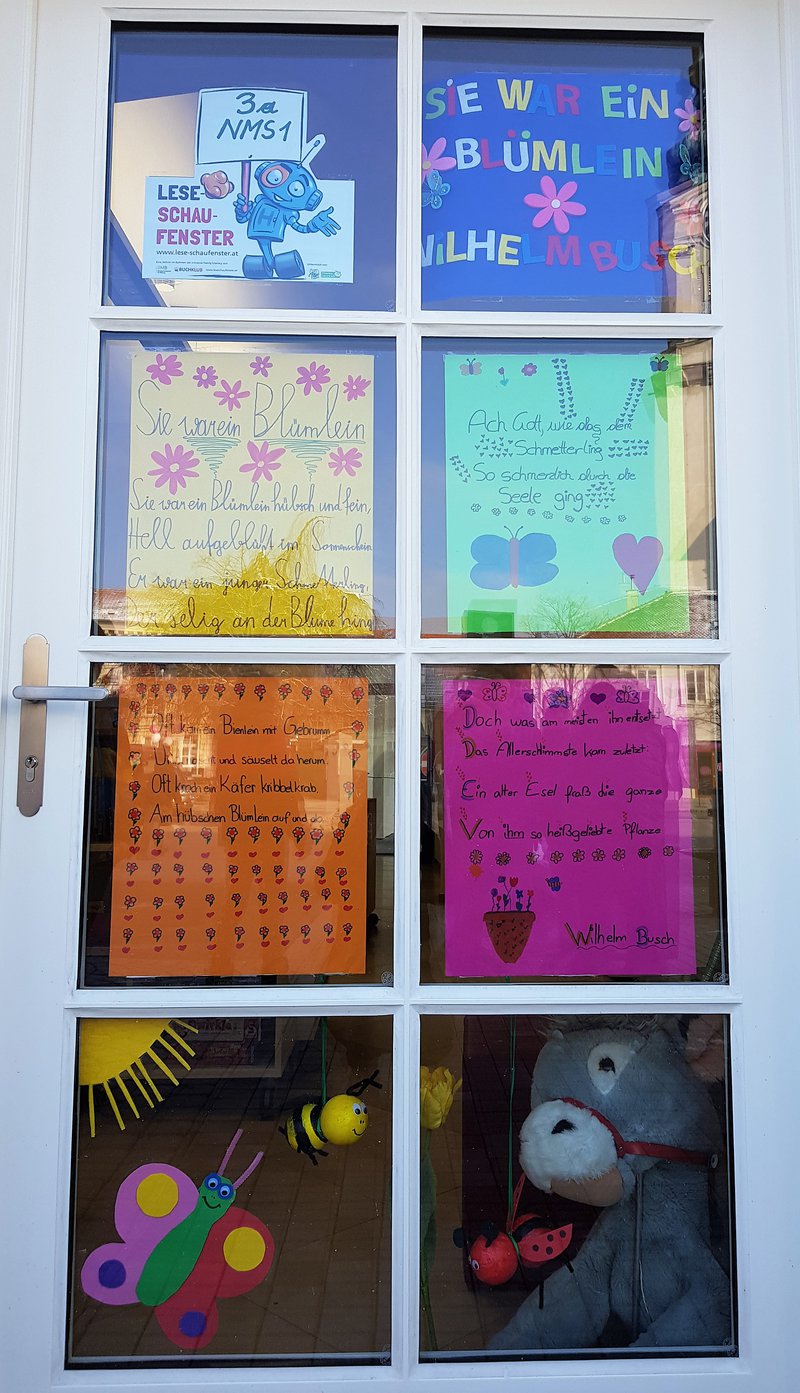 3a
NMS1
LESE-
SCHAU-
FENSTER
www.lese-schaufenster.at
BUCHKLUB
SIE WAR EIN
BLÜMLEIN
WILHELM BUSCH
Sie war ein Blümlein
Sie war ein Blümlein hübsch und fein,
Hell aufgeblüht im Sonnenschein
Er war ein junger Schmetterling,
Der selig an der Blume hing
Ach Gott, wie das dem
Schmetterling
So schmerzlich durch die
Seele ging
Oft kam ein Bienlein mit Gebrumm
Und nascht und säuselt da herum.
Oft kroch ein Käfer kribbelkrab,
Am hübschen Blümlein auf und ab.
Doch was am meisten ihn entsetzt
Das Allerschimmste kam zuletzt.
Ein alter Esel fraß die ganze
Von ihm so heißgeliebte Pflanze
Wilhelm Busch